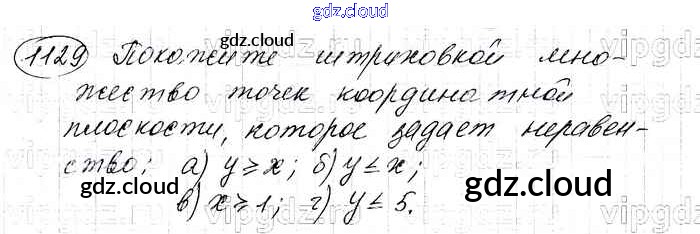 gdz.cloud
gdz.cloud
1129 Покажите штриховкой мно-
жество точек координатной
плоскости, которое задает неравен-
ство: а) y ≥ x; б) y ≤ x;
в) x ≥ 1; г) y ≤ 5.
gdz.cloud
gdz.cloud
gdz.cloud
gdz.cloud
vipgdz
vipgdz